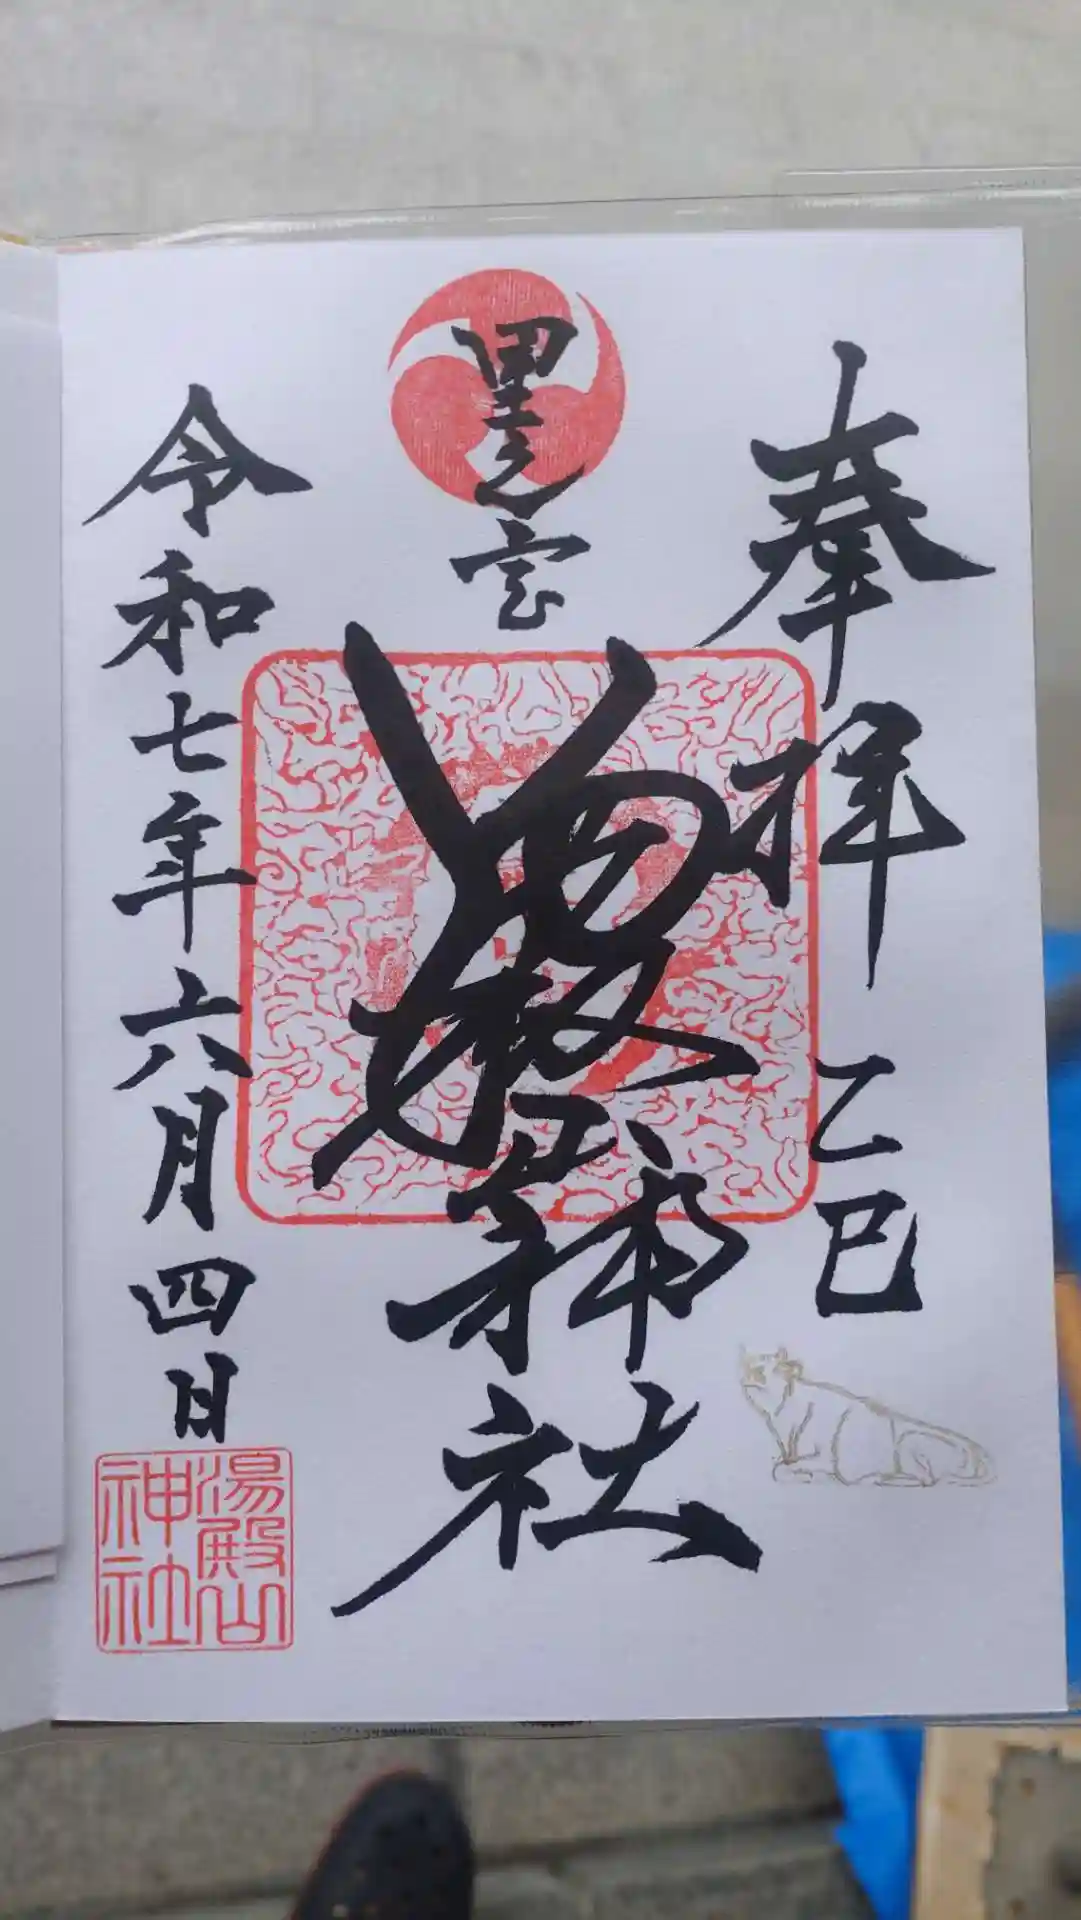 奉拝 乙巳
里之宮
湯殿山神社
令和七年六月四日
湯殿山
神社